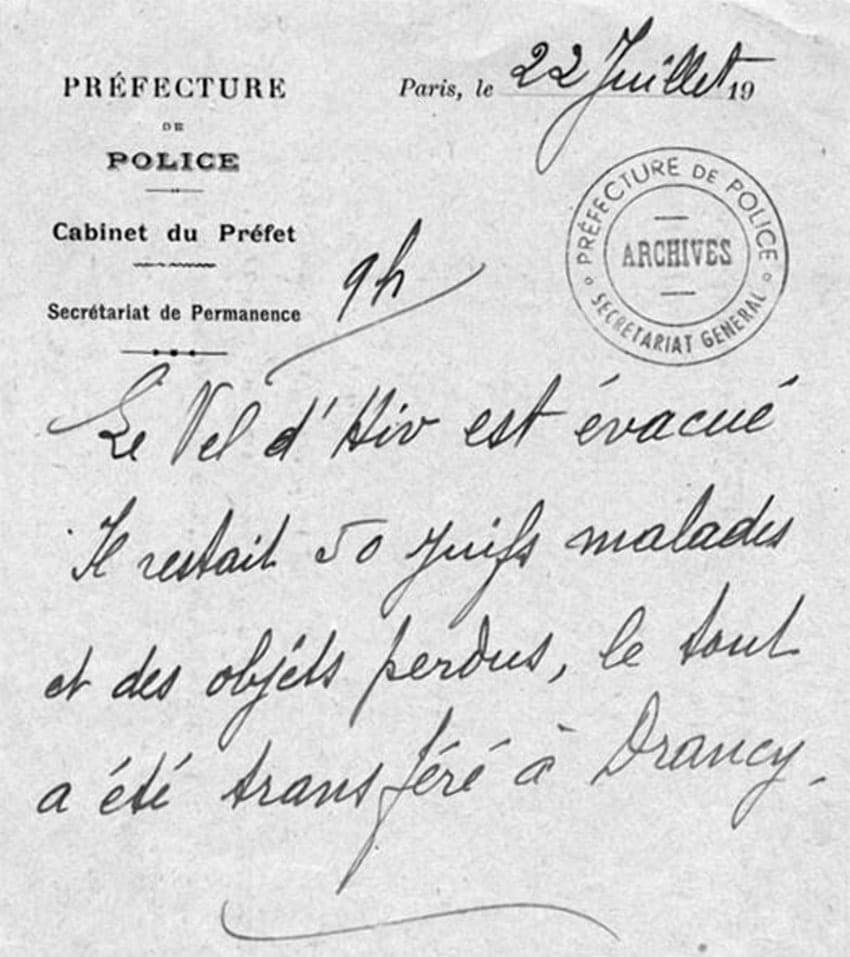 PRÉFECTURE
DE
POLICE
Cabinet du Préfet
Secrétariat de Permanence
Paris, le 22 Juillet 19
PRÉFECTURE DE POLICE
ARCHIVES
SECRETARIAT GENERAL
9h
Le Vel d'Hiv est évacué
Il restait 50 juifs malades
et des objets perdus, le tout
a été transféré à Drancy.